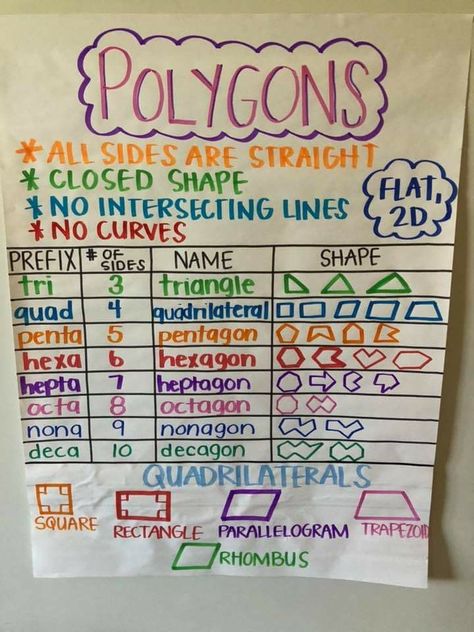 POLYGONS
* ALL SIDES ARE STRAIGHT
* CLOSED SHAPE
* NO INTERSECTING LINES
* NO CURVES
FLAT,
2D
PREFIX # OF SIDES NAME SHAPE
tri 3 triangle
quad 4 quadrilateral
penta 5 pentagon
hexa 6 hexagon
hepta 7 heptagon
octa 8 octagon
nona 9 nonagon
deca 10 decagon
QUADRILATERALS
SQUARE RECTANGLE PARALLELOGRAM TRAPEZOID
RHOMBUS